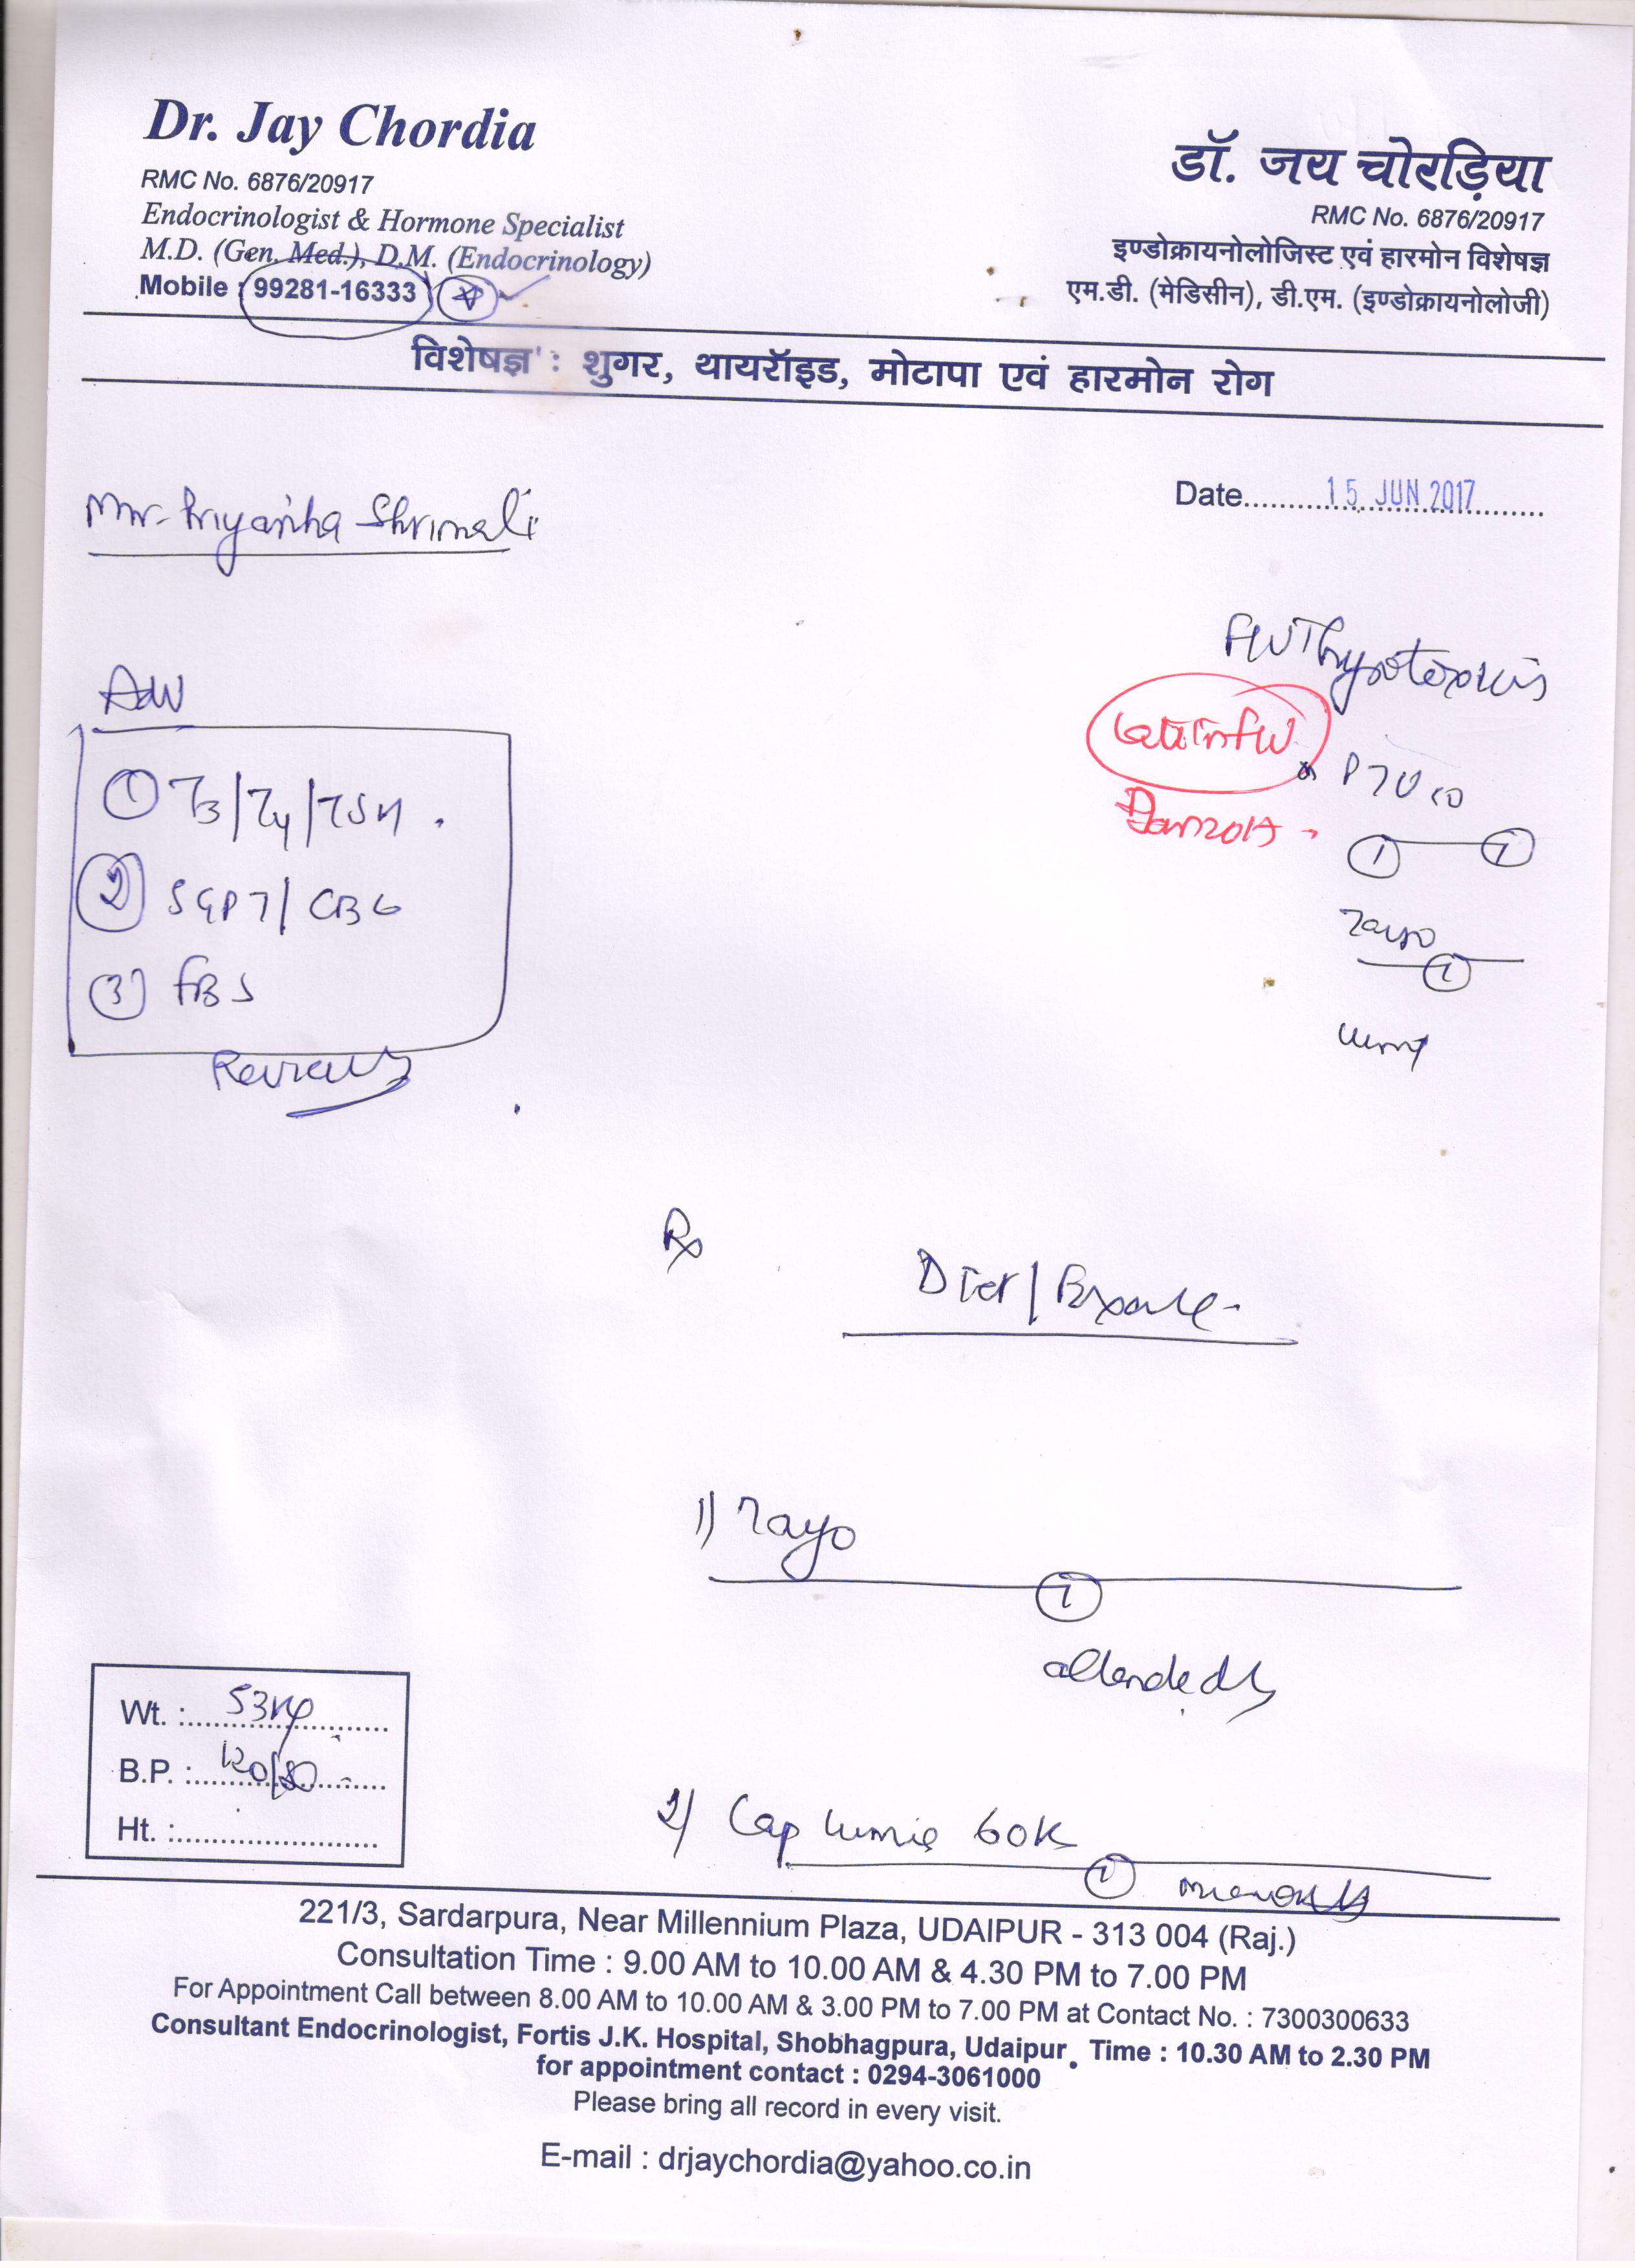 Dr. Jay Chordia
RMC No. 6876/20917
Endocrinologist & Hormone Specialist
M.D. (Gen. Med.), D.M. (Endocrinology)
Mobile : 99281-16333
डॉ. जय चोरड़िया
RMC No. 6876/20917
इण्डोक्रायनोलोजिस्ट एवं हारमोन विशेषज्ञ
एम.डी. (मेडिसीन), डी.एम. (इण्डोक्रायनोलोजी)
विशेषज्ञ : शुगर, थायरॉइड, मोटापा एवं हारमोन रोग
Priyanka Shrimali
Date 15 JUN 2017
Thyrotoxicosis
PTU 50
1 1
Adv
1 T3/T4/TSH.
2 SGPT/CBC
3) FBS
Review
Rx
Diet/Exercise
1) Tayo
1
alternate day
Wt. : 53kg
B.P. : 120/80
Ht. :
2) Cap 60K
1 monthly
221/3, Sardarpura, Near Millennium Plaza, UDAIPUR - 313 004 (Raj.)
Consultation Time : 9.00 AM to 10.00 AM & 4.30 PM to 7.00 PM
For Appointment Call between 8.00 AM to 10.00 AM & 3.00 PM to 7.00 PM at Contact No. : 7300300633
Consultant Endocrinologist, Fortis J.K. Hospital, Shobhagpura, Udaipur. Time : 10.30 AM to 2.30 PM
for appointment contact : 0294-3061000
Please bring all record in every visit.
E-mail : drjaychordia@yahoo.co.in